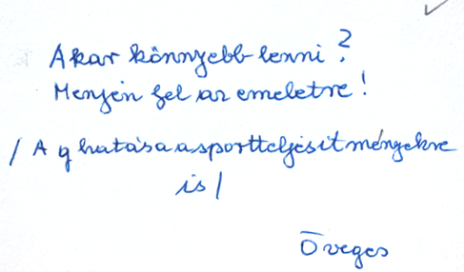 Akar könnyebb lenni?
Menjen fel az emeletre!
/ A g hatása a sportteljesítményekre
is /
Öveges